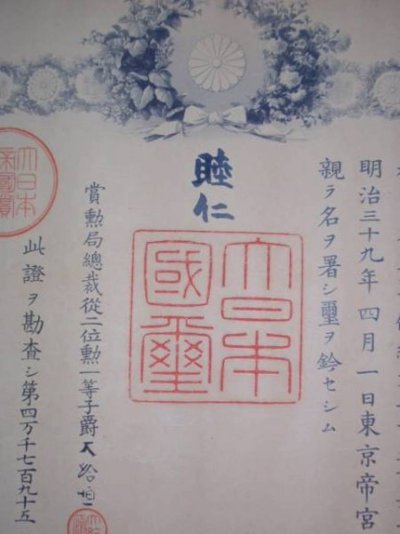 明治三十九年四月一日東京帝宮
親ラ名ヲ署シ璽ヲ鈐セシム
睦仁
大日本
國璽
賞勲局總裁從二位勲一等子爵大給恒
此證ヲ勘査シ第四万千七百九十五
大日本